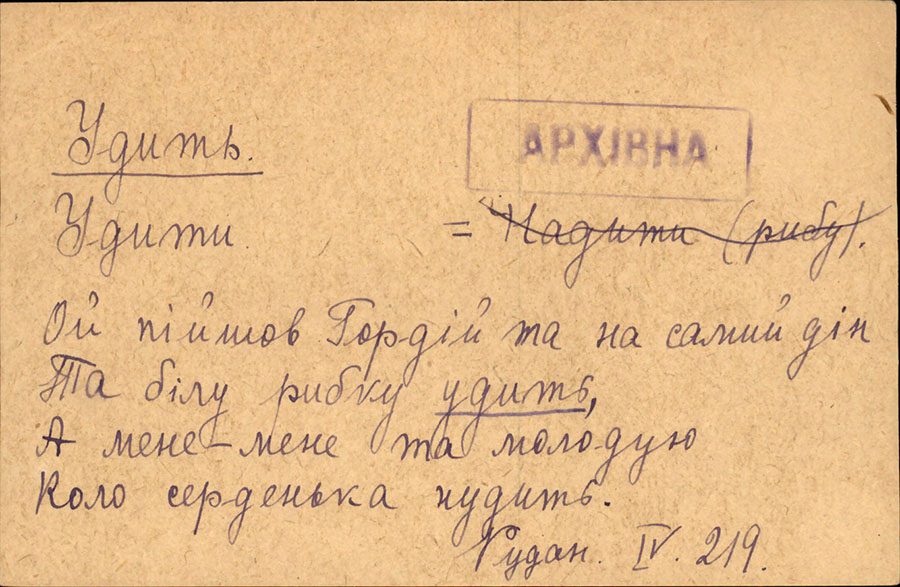 Удить.
АРХІВНА
Удити = Надити (рибу).
Ой пійшов Гордій та на самий дін
Та білу рибку удить,
А мене-мене та молодую
Коло серденька нудить.
Рудан. IV. 219.